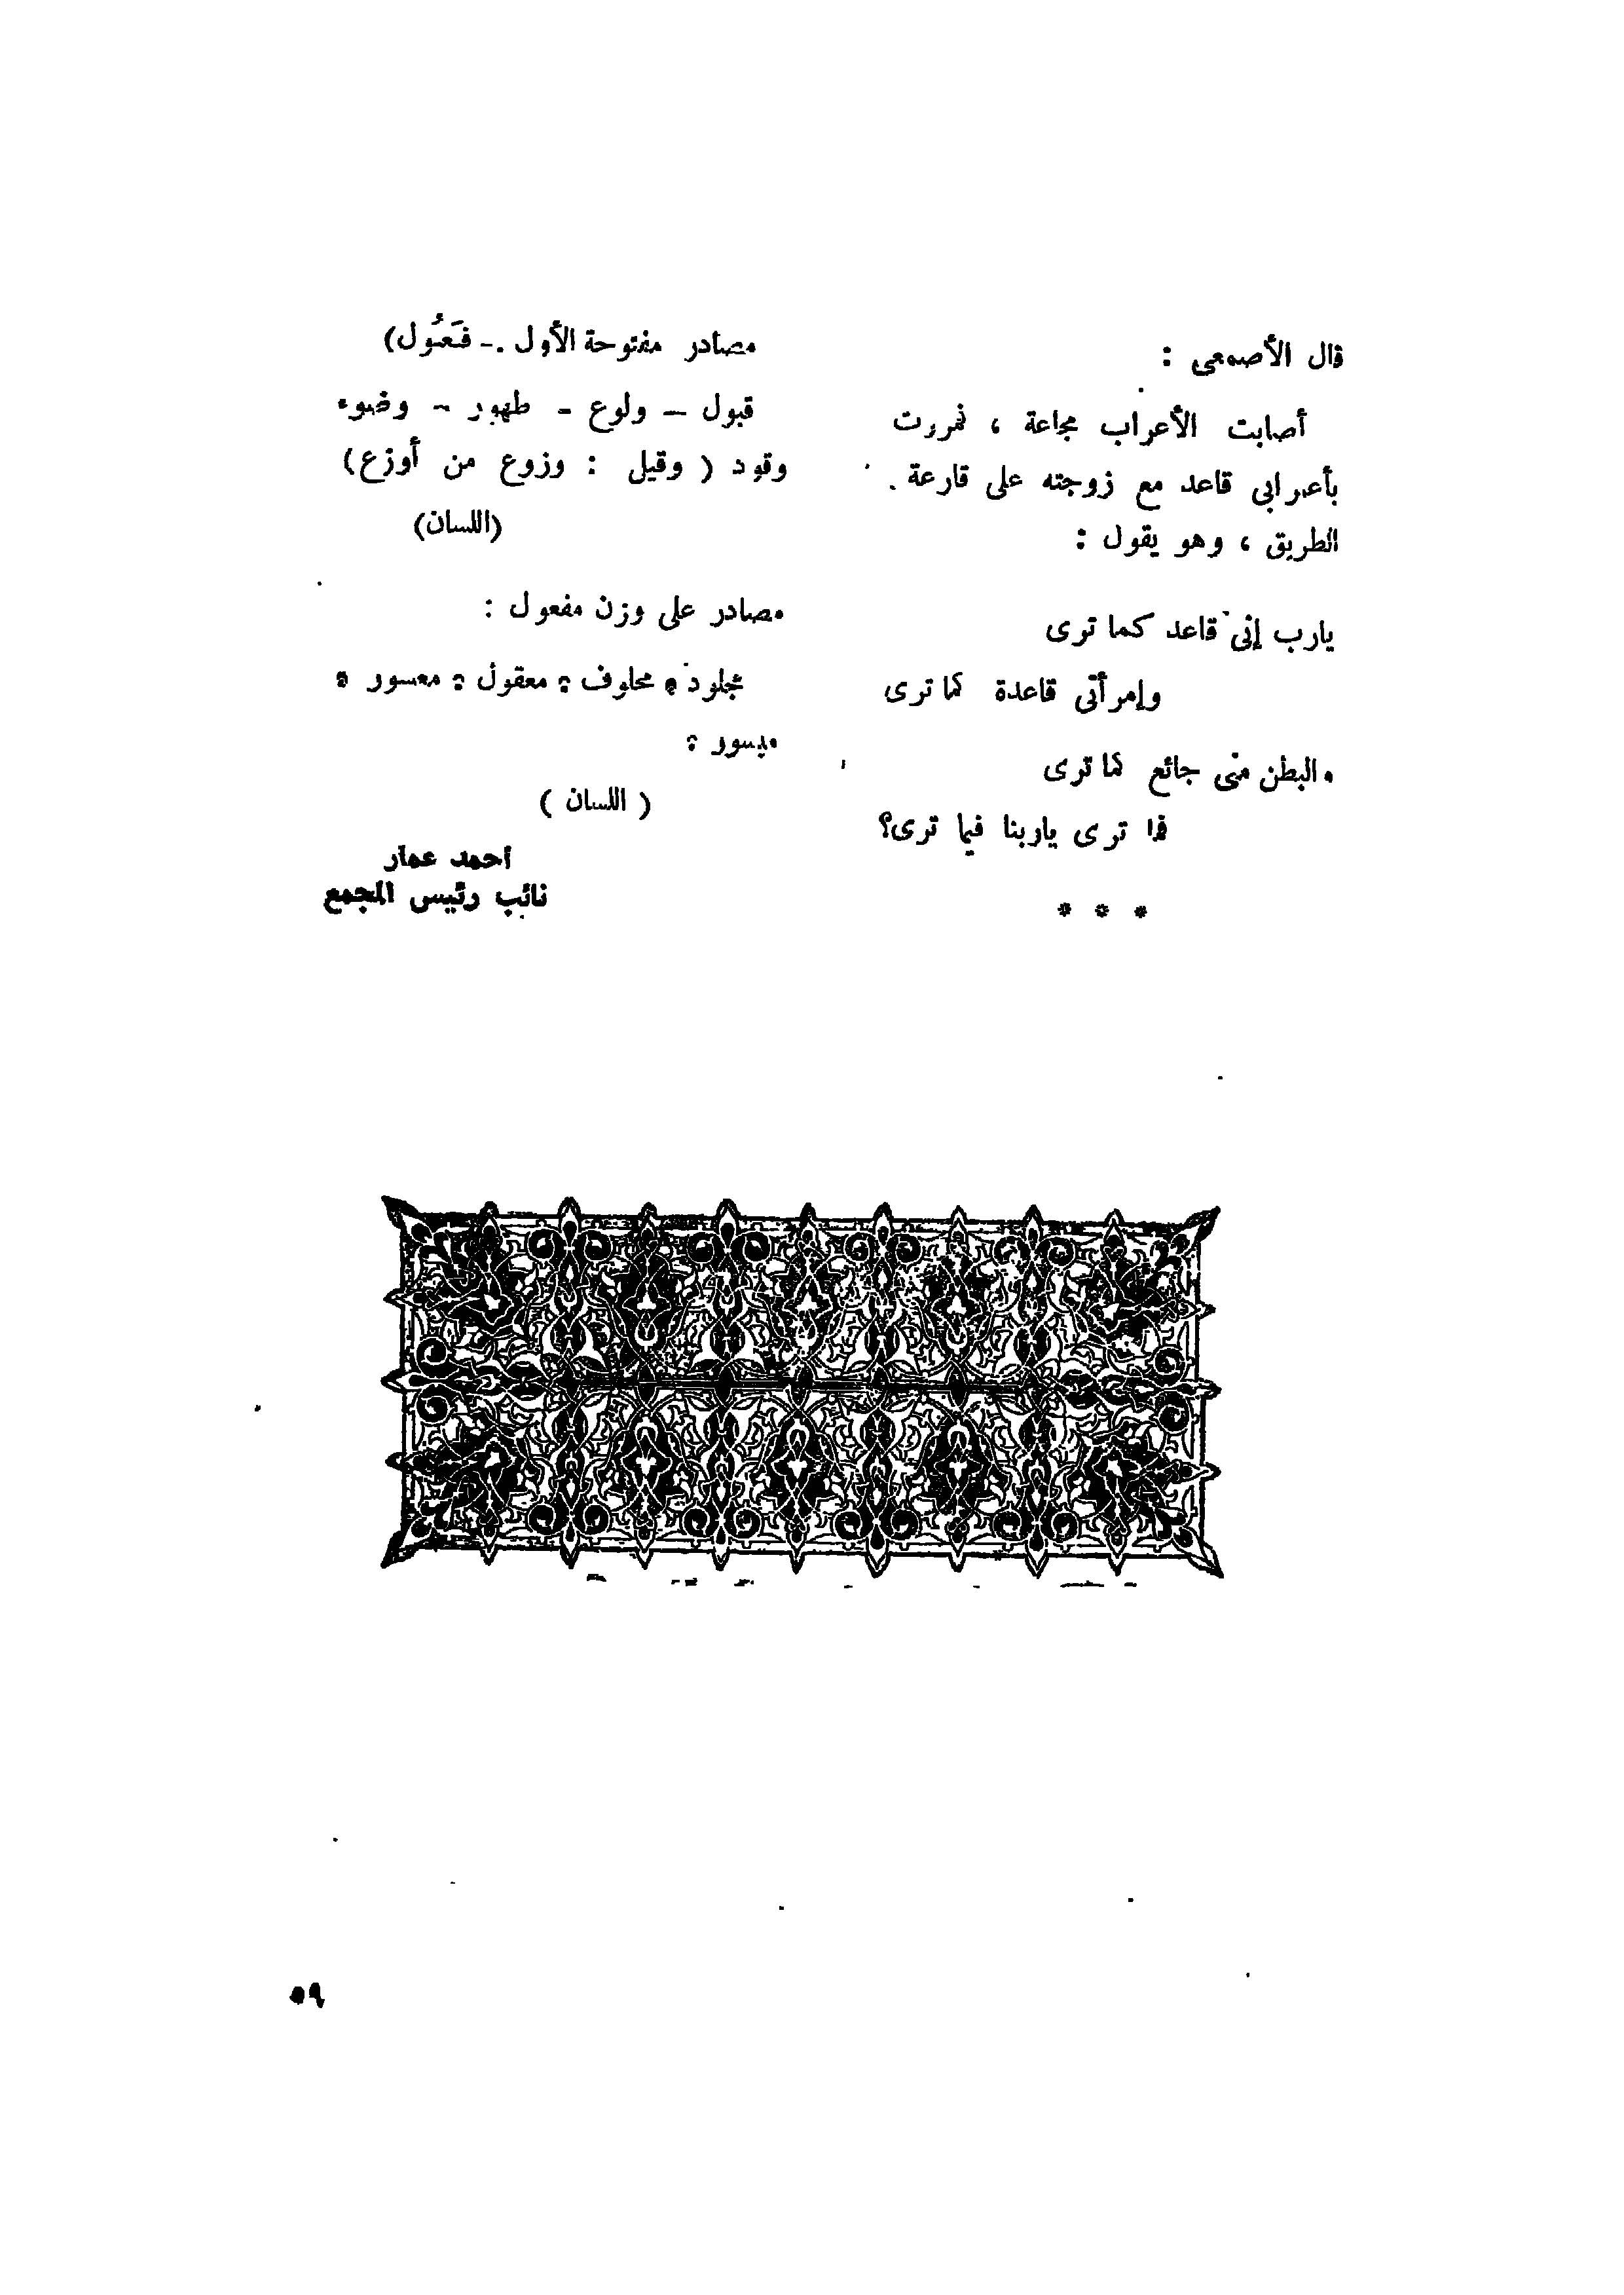 قال الأصمعى :
أصابت الأعراب مجاعة ، فمررت
بأعرابى قاعد مع زوجته على قارعة
الطريق ، وهو يقول :
يارب إنى قاعد كما ترى
وإمرأتى قاعدة كما ترى
والبطن منى جائع كما ترى
فما ترى ياربنا فيما ترى؟
* * *
مصادر مفتوحة الأول - فَعُول)
قبول – ولوع – طهور – وضوء
وقود ( وقيل : وزوع من أوزع)
(اللسان)
مصادر على وزن مفعول :
مجلود ، محلوف ، معقول ، معسور ،
ميسور ،
( اللسان )
أحمد عمار
نائب رئيس المجمع
٥٩